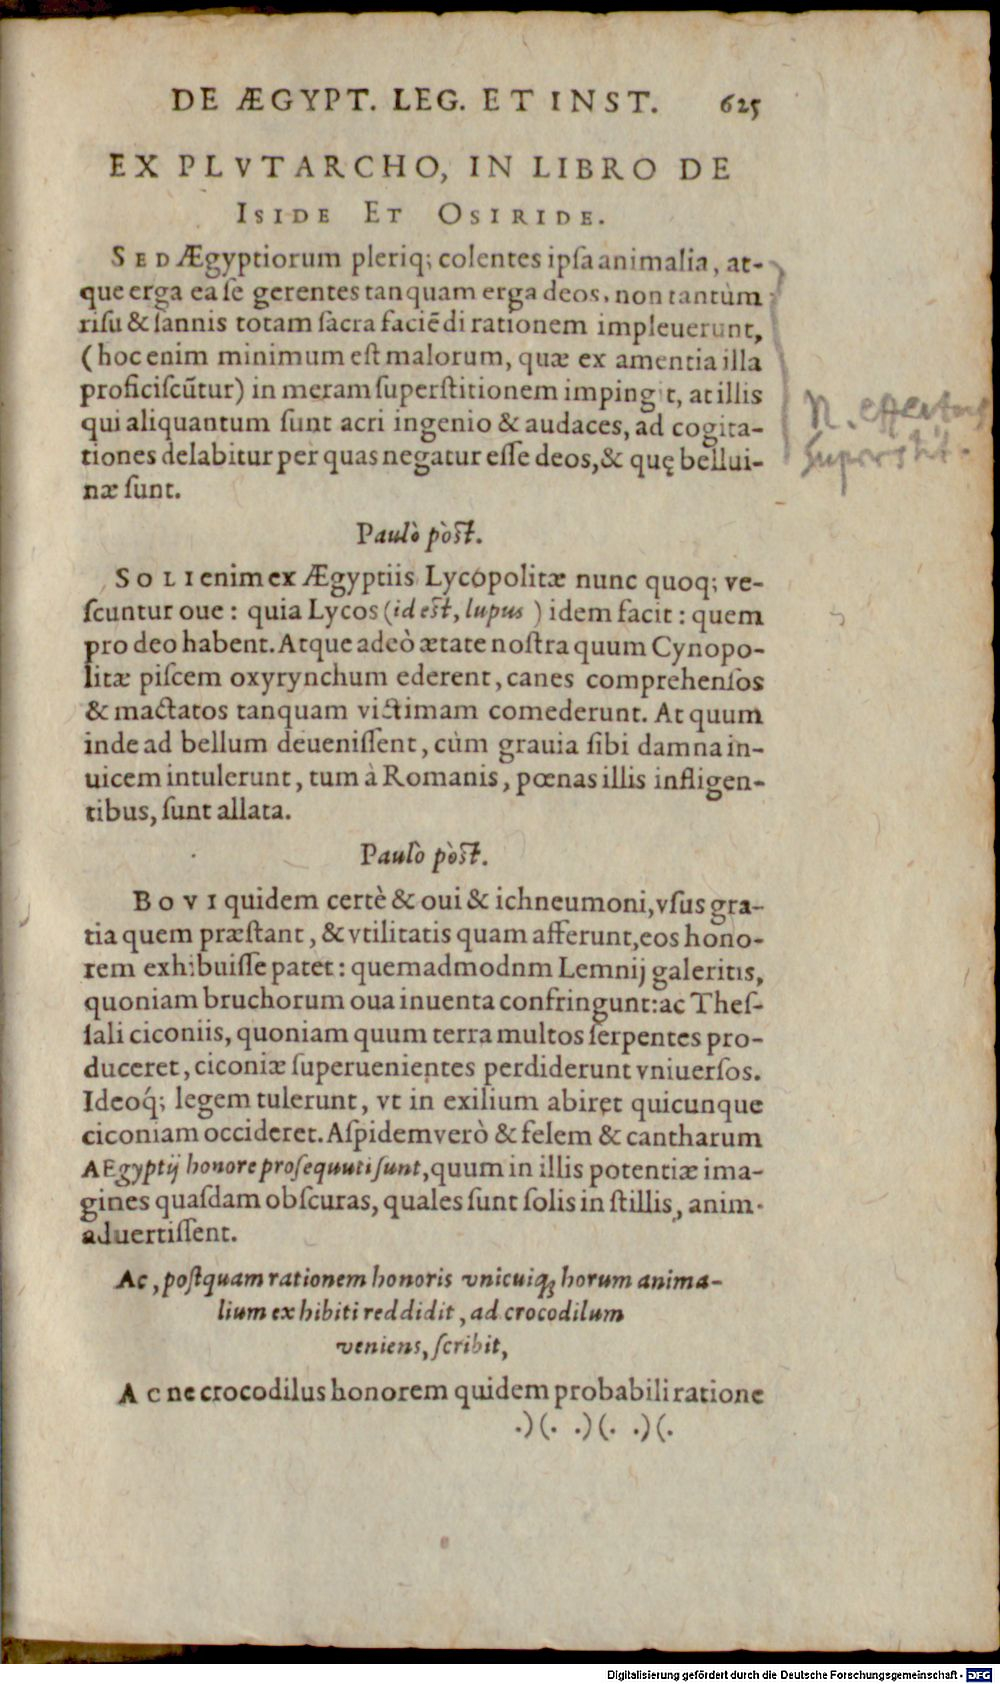 DE ÆGYPT. LEG. ET INST. 625
EX PLVTARCHO, IN LIBRO DE
ISIDE ET OSIRIDE.
SED Ægyptiorum pleriq; colentes ipſa animalia, at-
que erga ea ſe gerentes tanquam erga deos, non tantùm
riſu & ſannis totam ſacra faciēdi rationem impleuerunt,
(hoc enim minimum eſt malorum, quæ ex amentia illa
proficiſcūtur) in meram ſuperſtitionem impingit, at illis
qui aliquantum ſunt acri ingenio & audaces, ad cogita-
tiones delabitur per quas negatur eſſe deos, & quę bellui-
næ ſunt.
N. effectus
superstit.
Paulò pòſt.
SOLI enim ex Ægyptiis Lycopolitæ nunc quoq; ve-
ſcuntur oue: quia Lycos (id eſt, lupus) idem facit: quem
pro deo habent. Atque adeò ætate noſtra quum Cynopo-
litæ piſcem oxyrynchum ederent, canes comprehenſos
& mactatos tanquam victimam comederunt. At quum
inde ad bellum deueniſſent, cùm grauia ſibi damna in-
uicem intulerunt, tum à Romanis, pœnas illis infligen-
tibus, ſunt allata.
Paulò pòſt.
BOVI quidem certè & oui & ichneumoni, vſus gra-
tia quem præſtant, & vtilitatis quam afferunt, eos hono-
rem exhibuiſſe patet: quemadmodnm Lemnij galeritis,
quoniam bruchorum oua inuenta confringunt: ac Theſ-
ſali ciconiis, quoniam quum terra multos ſerpentes pro-
duceret, ciconiæ ſuperuenientes perdiderunt vniuerſos.
Ideoq́; legem tulerunt, vt in exilium abiret quicunque
ciconiam occideret. Aſpidem verò & felem & cantharum
AEgyptij honore proſequuti ſunt, quum in illis potentiæ ima-
gines quaſdam obſcuras, quales ſunt ſolis in ſtillis, anim-
aduertiſſent.
Ac, poſtquam rationem honoris vnicuiq; horum anima-
lium exhibiti reddidit, ad crocodilum
veniens, ſcribit,
AC ne crocodilus honorem quidem probabili ratione
.)(. .)(. .)(.
Digitalisierung gefördert durch die Deutsche Forschungsgemeinschaft - DFG